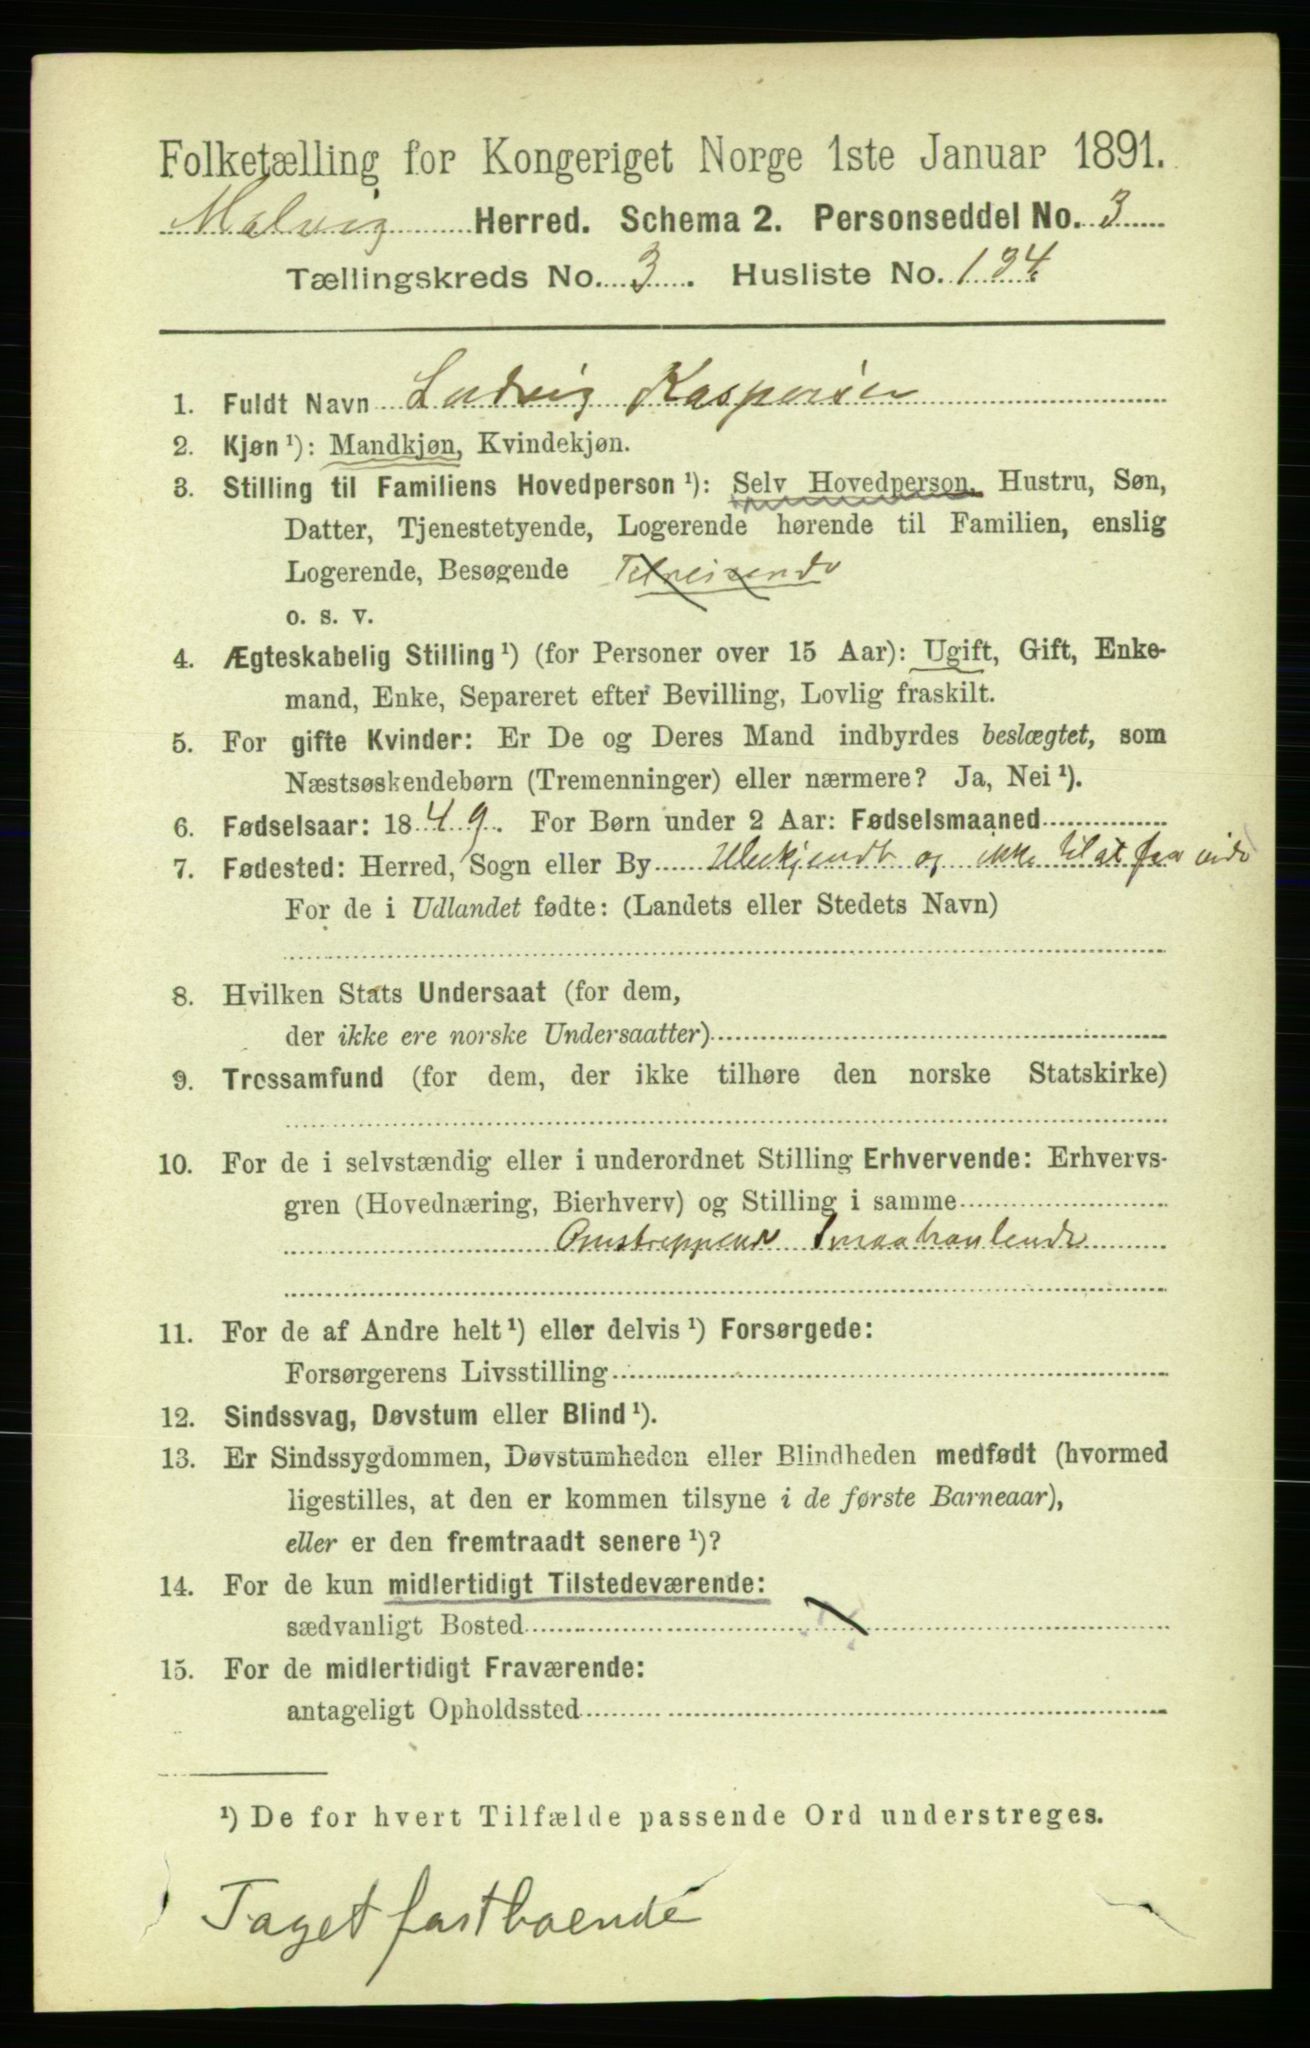 Folketælling for Kongeriget Norge 1ste Januar 1891.
Malvig Herred. Schema 2. Personseddel No. 3
Tællingskreds No. 3. Husliste No. 124
1. Fuldt Navn Ludvig Kaspersen
2. Kjøn ¹): Mandkjøn, Kvindekjøn.
3. Stilling til Familiens Hovedperson ¹): Selv Hovedperson, Hustru, Søn,
Datter, Tjenestetyende, Logerende hørende til Familien, enslig
Logerende, Besøgende Tilreisende
o. s. v.
4. Ægteskabelig Stilling ¹) (for Personer over 15 Aar): Ugift, Gift, Enke-
mand, Enke, Separeret efter Bevilling, Lovlig fraskilt.
5. For gifte Kvinder: Er De og Deres Mand indbyrdes beslægtet, som
Næstsøskendebørn (Tremenninger) eller nærmere? Ja, Nei ¹).
6. Fødselsaar: 1849. For Børn under 2 Aar: Fødselsmaaned
7. Fødested: Herred, Sogn eller By Ubekjendt og ikke til at faa vide
For de i Udlandet fødte: (Landets eller Stedets Navn)
8. Hvilken Stats Undersaat (for dem,
der ikke ere norske Undersaatter)
9. Trossamfund (for dem, der ikke tilhøre den norske Statskirke)
10. For de i selvstændig eller i underordnet Stilling Erhvervende: Erhvervs-
gren (Hovednæring, Bierhverv) og Stilling i samme
Omstreppende Smaahanlende
11. For de af Andre helt ¹) eller delvis ¹) Forsørgede:
Forsørgerens Livsstilling
12. Sindssvag, Døvstum eller Blind ¹).
13. Er Sindssygdommen, Døvstumheden eller Blindheden medfødt (hvormed
ligestilles, at den er kommen tilsyne i de første Barneaar),
eller er den fremtraadt senere ¹)?
14. For de kun midlertidigt Tilstedeværende:
sædvanligt Bosted
15. For de midlertidigt Fraværende:
antageligt Opholdssted
¹) De for hvert Tilfælde passende Ord understreges.
Taget fastboende